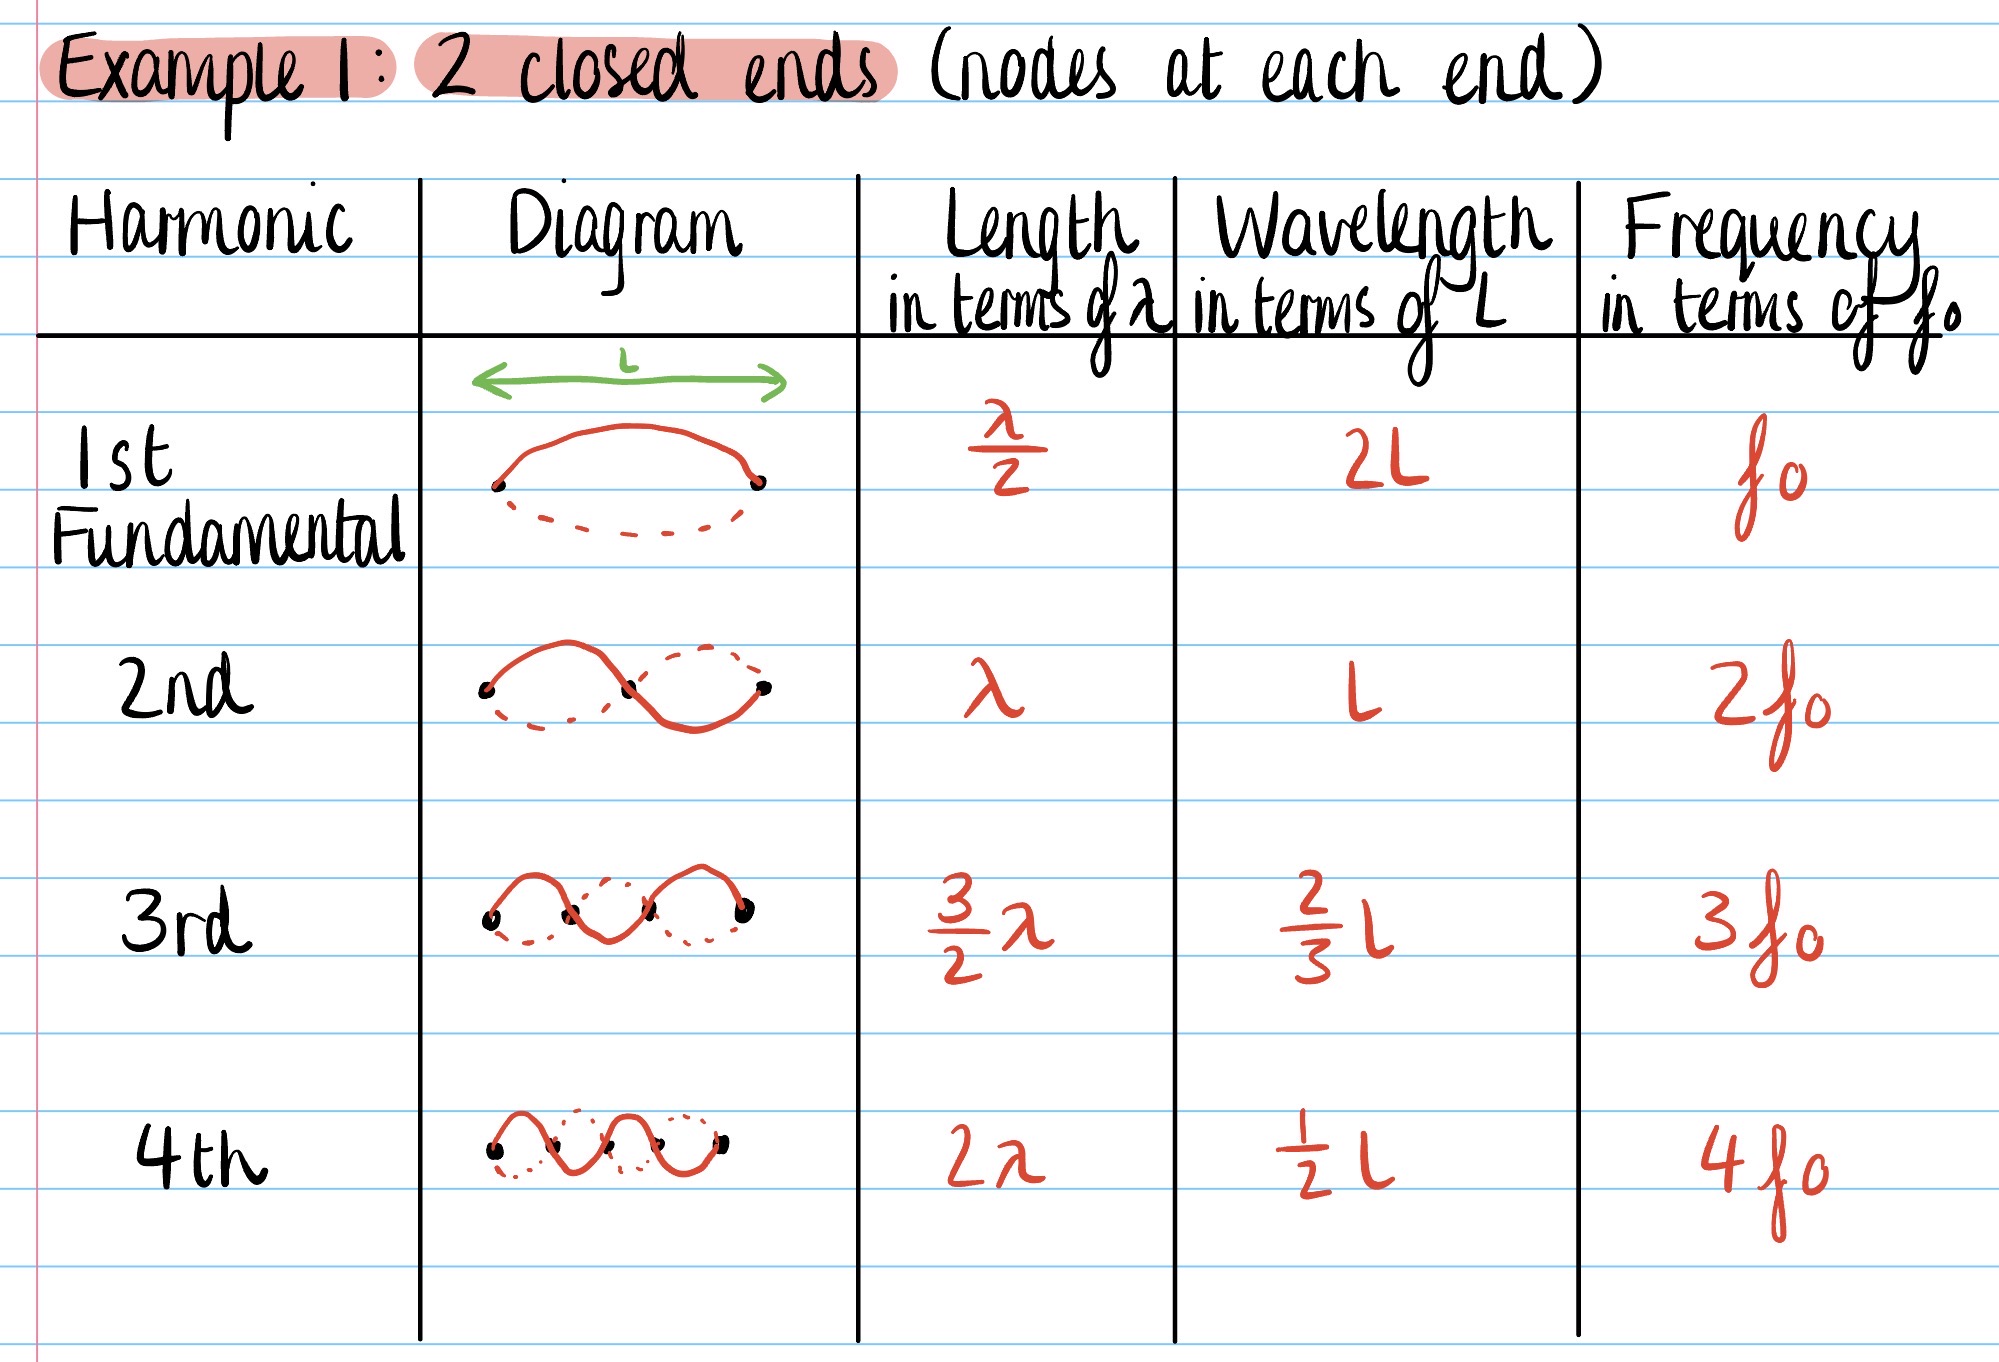 Example 1: 2 closed ends (nodes at each end)
Harmonic Diagram Length in terms of λ Wavelength in terms of L Frequency in terms of f₀
L
1st Fundamental λ/2 2L f₀
2nd λ L 2f₀
3rd 3/2 λ 2/3 L 3f₀
4th 2λ 1/2 L 4f₀